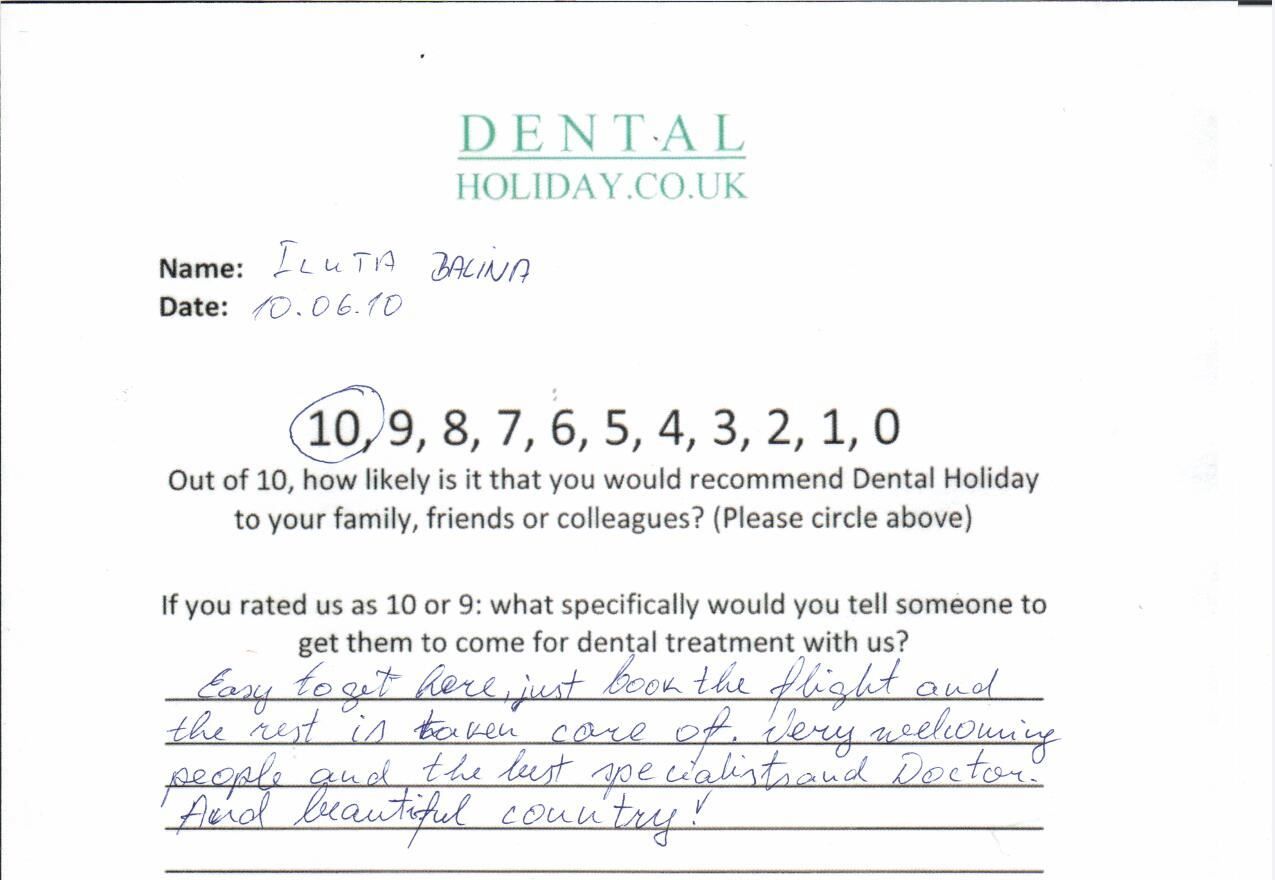 DENTAL
HOLIDAY.CO.UK
Name: ILUTA BALINA
Date: 10.06.10
10, 9, 8, 7, 6, 5, 4, 3, 2, 1, 0
Out of 10, how likely is it that you would recommend Dental Holiday
to your family, friends or colleagues? (Please circle above)
If you rated us as 10 or 9: what specifically would you tell someone to
get them to come for dental treatment with us?
Easy to get here, just book the flight and
the rest is taken care of. Very welcoming
people and the best specialists and Doctor.
And beautiful country!